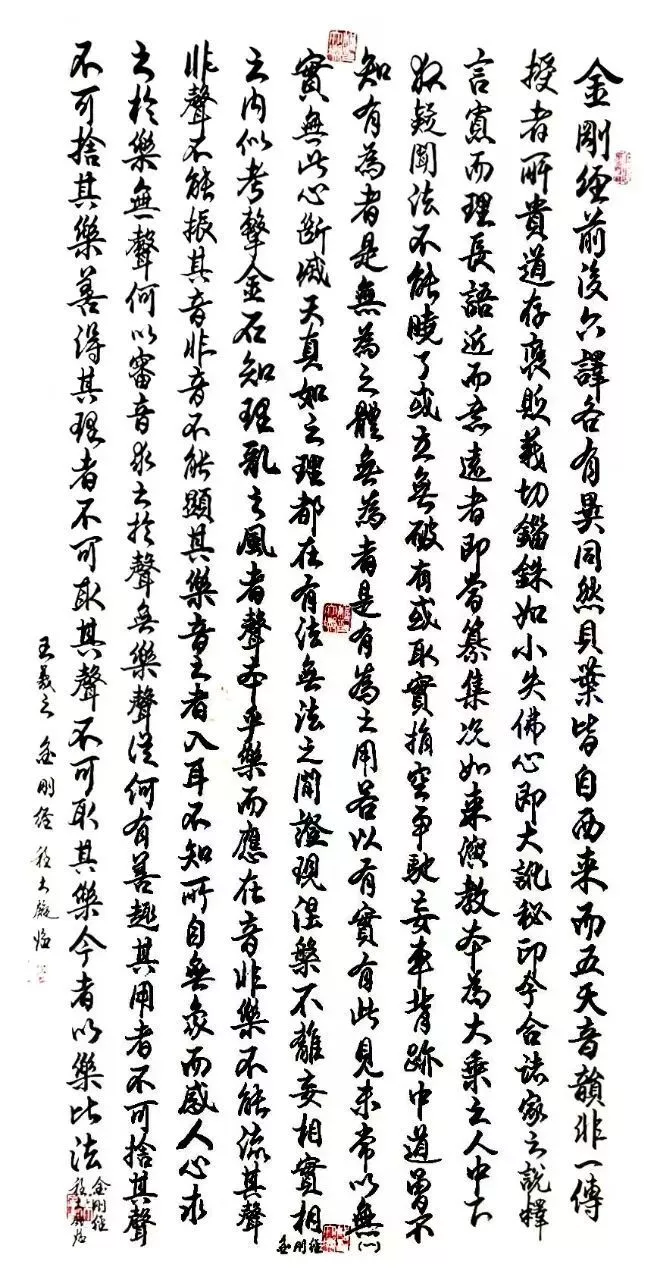 金剛經前後六譯各有異同然貝葉皆自西来而五天音韻非一傳
授者所貴道存褒貶義切錙銖如小失佛心即大訛秘印今合諸家之說擇
言寡而理長語近而意遠者即當纂集况如来演教本為大乘之人中下
狐疑聞法不能曉了或立無破有或取實捐空争馳妄車背跡中道曾不
知有為者是無為之體無為者是有為之用若以有實有此見未常以無
實無此心斷滅天真如之理都在有法無法之間證現涅槃不離妄相實相
之内似考擊金石知理亂之風者聲本乎樂而應在音非樂不能流其聲
非聲不能振其音非音不能顯其樂音之者入耳不知所自無象而感人心求
之於樂無聲何以審音求之於聲無樂聲從何有善趣其用者不可捨其聲
不可捨其樂善得其理者不可取其聲不可取其樂今者以樂比法
王羲之 金剛經 程大 臨
金剛經
金剛經(一)